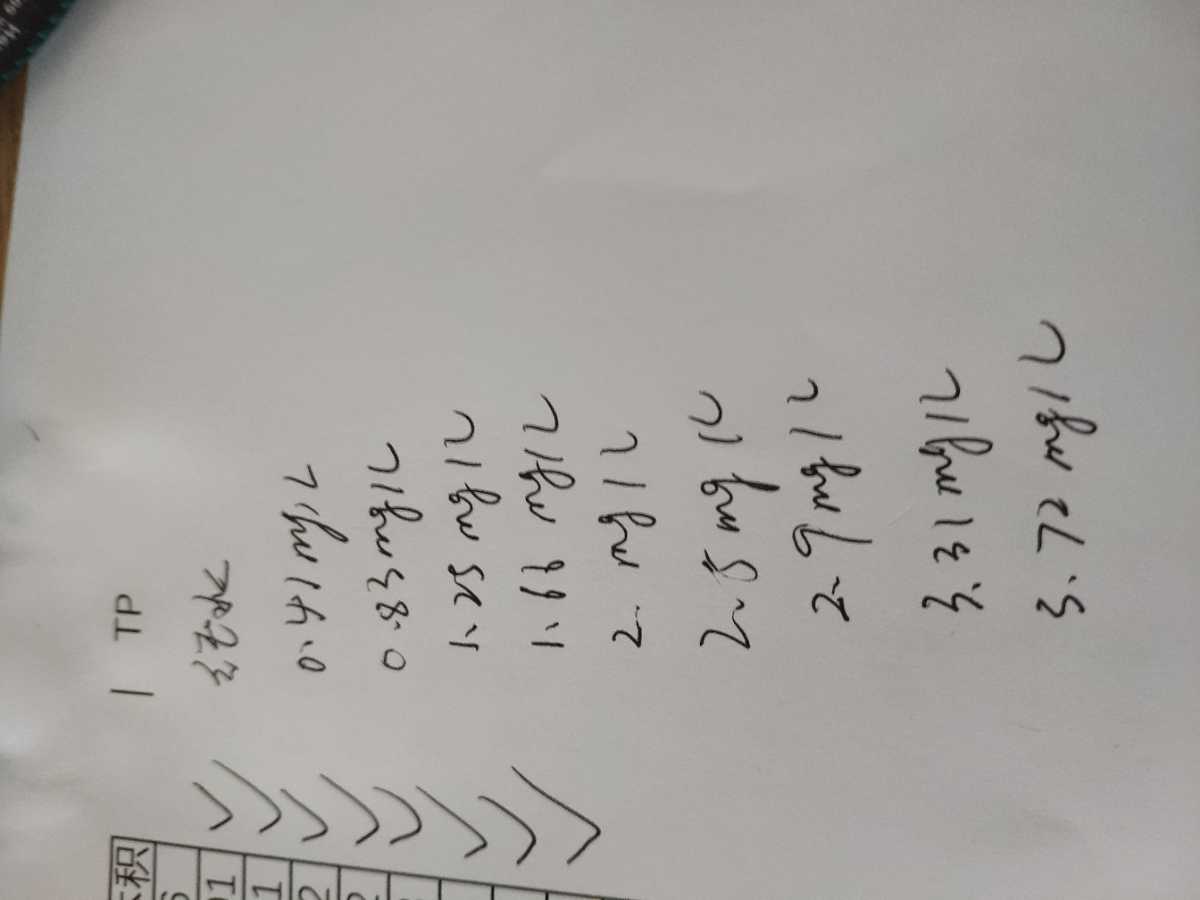 1 TP
纯水
0.41mg/L
0.83mg/L
1.25 mg/L
1.66 mg/L
2. mg/L
2.5 mg/L
2.9 mg/L
3.31 mg/L
3.72 mg/L
积